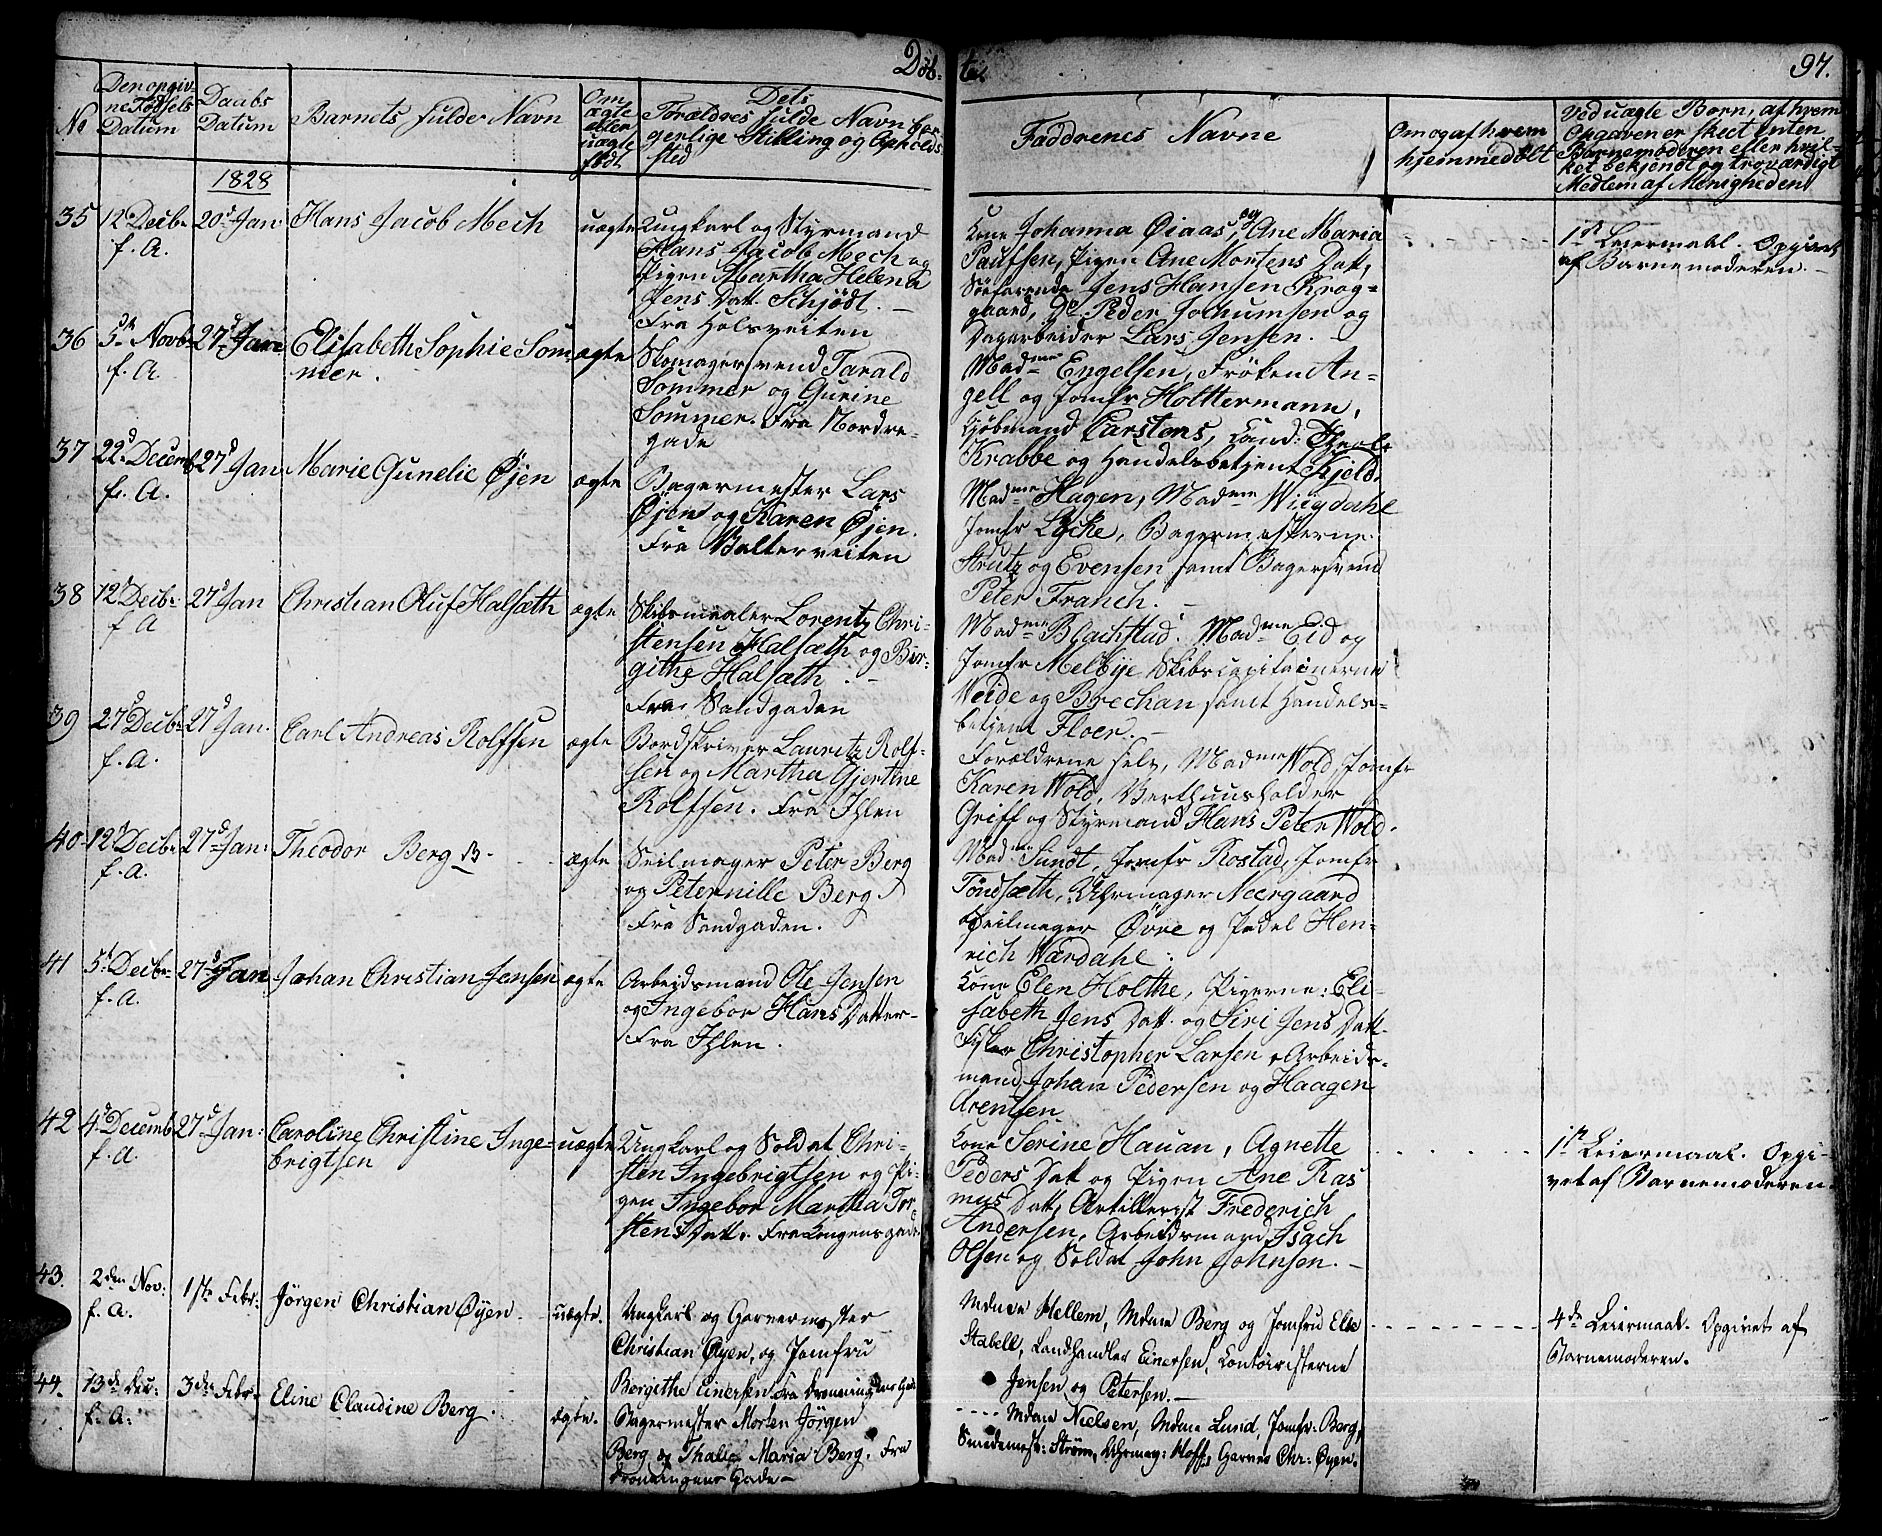 Döb-
te
97.
No
Den opgiv-
ne Fødsels
Datum
Daabs
Datum
Barnets fulde Navn
Om
ægte
eller
uægte
født
Dets
Forældres fulde Navn bor-
gerlige Stilling og Opholds-
sted
Faddrenes Navne
Om og af hvem
hjemmedöbt
Ved uægte Børn, af hvem
Opgaven er skeet enten
Barnemoderen eller hvil-
ket bekjendt og troværdigt
Medlem af Menigheden
1828
35
12 Decbr
f. A.
20d Jan
Hans Jacob Mech
uægte
Ungkarl og Styrmand
Hans Jacob Mech og
Pigen Martha Helena
Jens Datt. Schjödt. -
Fra Holsveiten
Kone Johanna Øiaas, og Ane Maria
Paulsen, Pigen Ane Mortens Datt,
Söefarende Jens Hansen Krog-
gaard, Do Peder Jochumsen og
Dagarbeider Lars Jensen. -
1ste Leiermaal. Opgivet
af Barnemoderen. -
36
5te Novbr
f. A.
27d Jan
Elisabeth Sophie Som
mer.
ægte
Skomagersvend Tarald
Sommer og Gurine
Sommer. Fra Nordre-
gade
Madme Engelsen, Fröken An-
gell og Jomfr Holttermann,
Kjöbmand Carstens, Cand: Theol:
Krabbe og Handelsbetjent Kjeld.
37
22d Decemb
f. A.
27d Jan
Marie Gunelie Øjen
ægte
Bagermester Lars
Øjen og Karen Øjen.
Fra Valterveiten
Madme Hagen, Madme Wiigdahl
Jomfr Lycke, Bagermesterne
Strutz og Evensen samt Bagersvend
Peter Franch. -
38
12 Decbr
f A
27d Jan
Christian Oluf Halsæth
ægte
Skibsmæler Lorentz Chri-
stensen Halsæth og Bir-
githe Halsæth. -
Fra Sandgaden
Madme Blachstad. Madme Eid og
Jomfr Melbye Skibscapitainerne
Weide og Brechan samt Handels-
betjent Floer. -
39
27d Decbr
f. A.
27d Jan.
Carl Andreas Rolfsen
ægte
Bordskriver Lauritz Rolf-
sen og Martha Gjertine
Rolfsen. Fra Ihlen
Forældrene selv, Madme Wold, Jomfr
Karen Wold, Værthuusholder
Griff og Styrmand Hans Peter Wold.
40
12 Decbr
f. A.
27d Jan:
Theodor Berg
ægte
Seilmager Peter Berg
og Peternille Berg.
Fra Sandgaden.
Madme Sundt, Jomfr Rostad, Jomfr
Töndsæth, Uhrmager Neergaard
Seilmager Øvre og Pedel Hen-
rich Wærdahl.
41
5t Decbr
f. A.
27d Jan
Johan Christian Jensen
ægte
Arbeidsmand Ole Jensen
og Ingebor Hans Datter-
Fra Ihlen.
Kone Elen Holthe, Pigerne: Eli-
sabeth Jens Datt. og Siri Jens Datt-
Fisker Christopher Larsen, Arbeids-
mand Johan Pedersen og Haagen
Arentsen
42
4d Decemb
f. A.
27d Jan:
Caroline Christine Inge-
brigtsen
uægte
Ungkarl og Soldat Chri-
sten Ingebrigtsen og Pi-
gen Ingebor Martha Tor
stens Datt. Fra Kongensgade
Kone Serine Hauan, Agnette
Peders Dat og Pigen Ane Ras
mus Datt, Artillerist Frederich
Andersen, Arbeidsmand Isach
Olsen og Soldat John Johnsen. -
1ste Leiermaal. Opgi-
vet af Barnemoderen.
43.
2den Nov:
f. A.
1ste Febr:
Jörgen Christian Øyen.
uægte.
Ungkarl og Garvermester
Christian Øyen, og Jomfru
Bergithe Einersen fra Dronningens Gade
Mdme Hellem, Mdme Berg og Jomfru Else
Stabell, Landhandler Einersen, Contoiristerne
Jensen og Petersen. -
4de Leiermaal. Opgivet af
Barnemoderen.
44.
13de Dec:
f. A:
3die Febr.
Eline Claudine Berg.
ægte.
Bagermester Morten Jörgen
Berg og Thalie Maria Berg. Fra
Dronningens Gade -
Mdme Nielsen, Mdme Lund, Jomfr: Berg,
Smedemest: Ström, Uhrmag: Hoff, Garver Chr: Øyen.